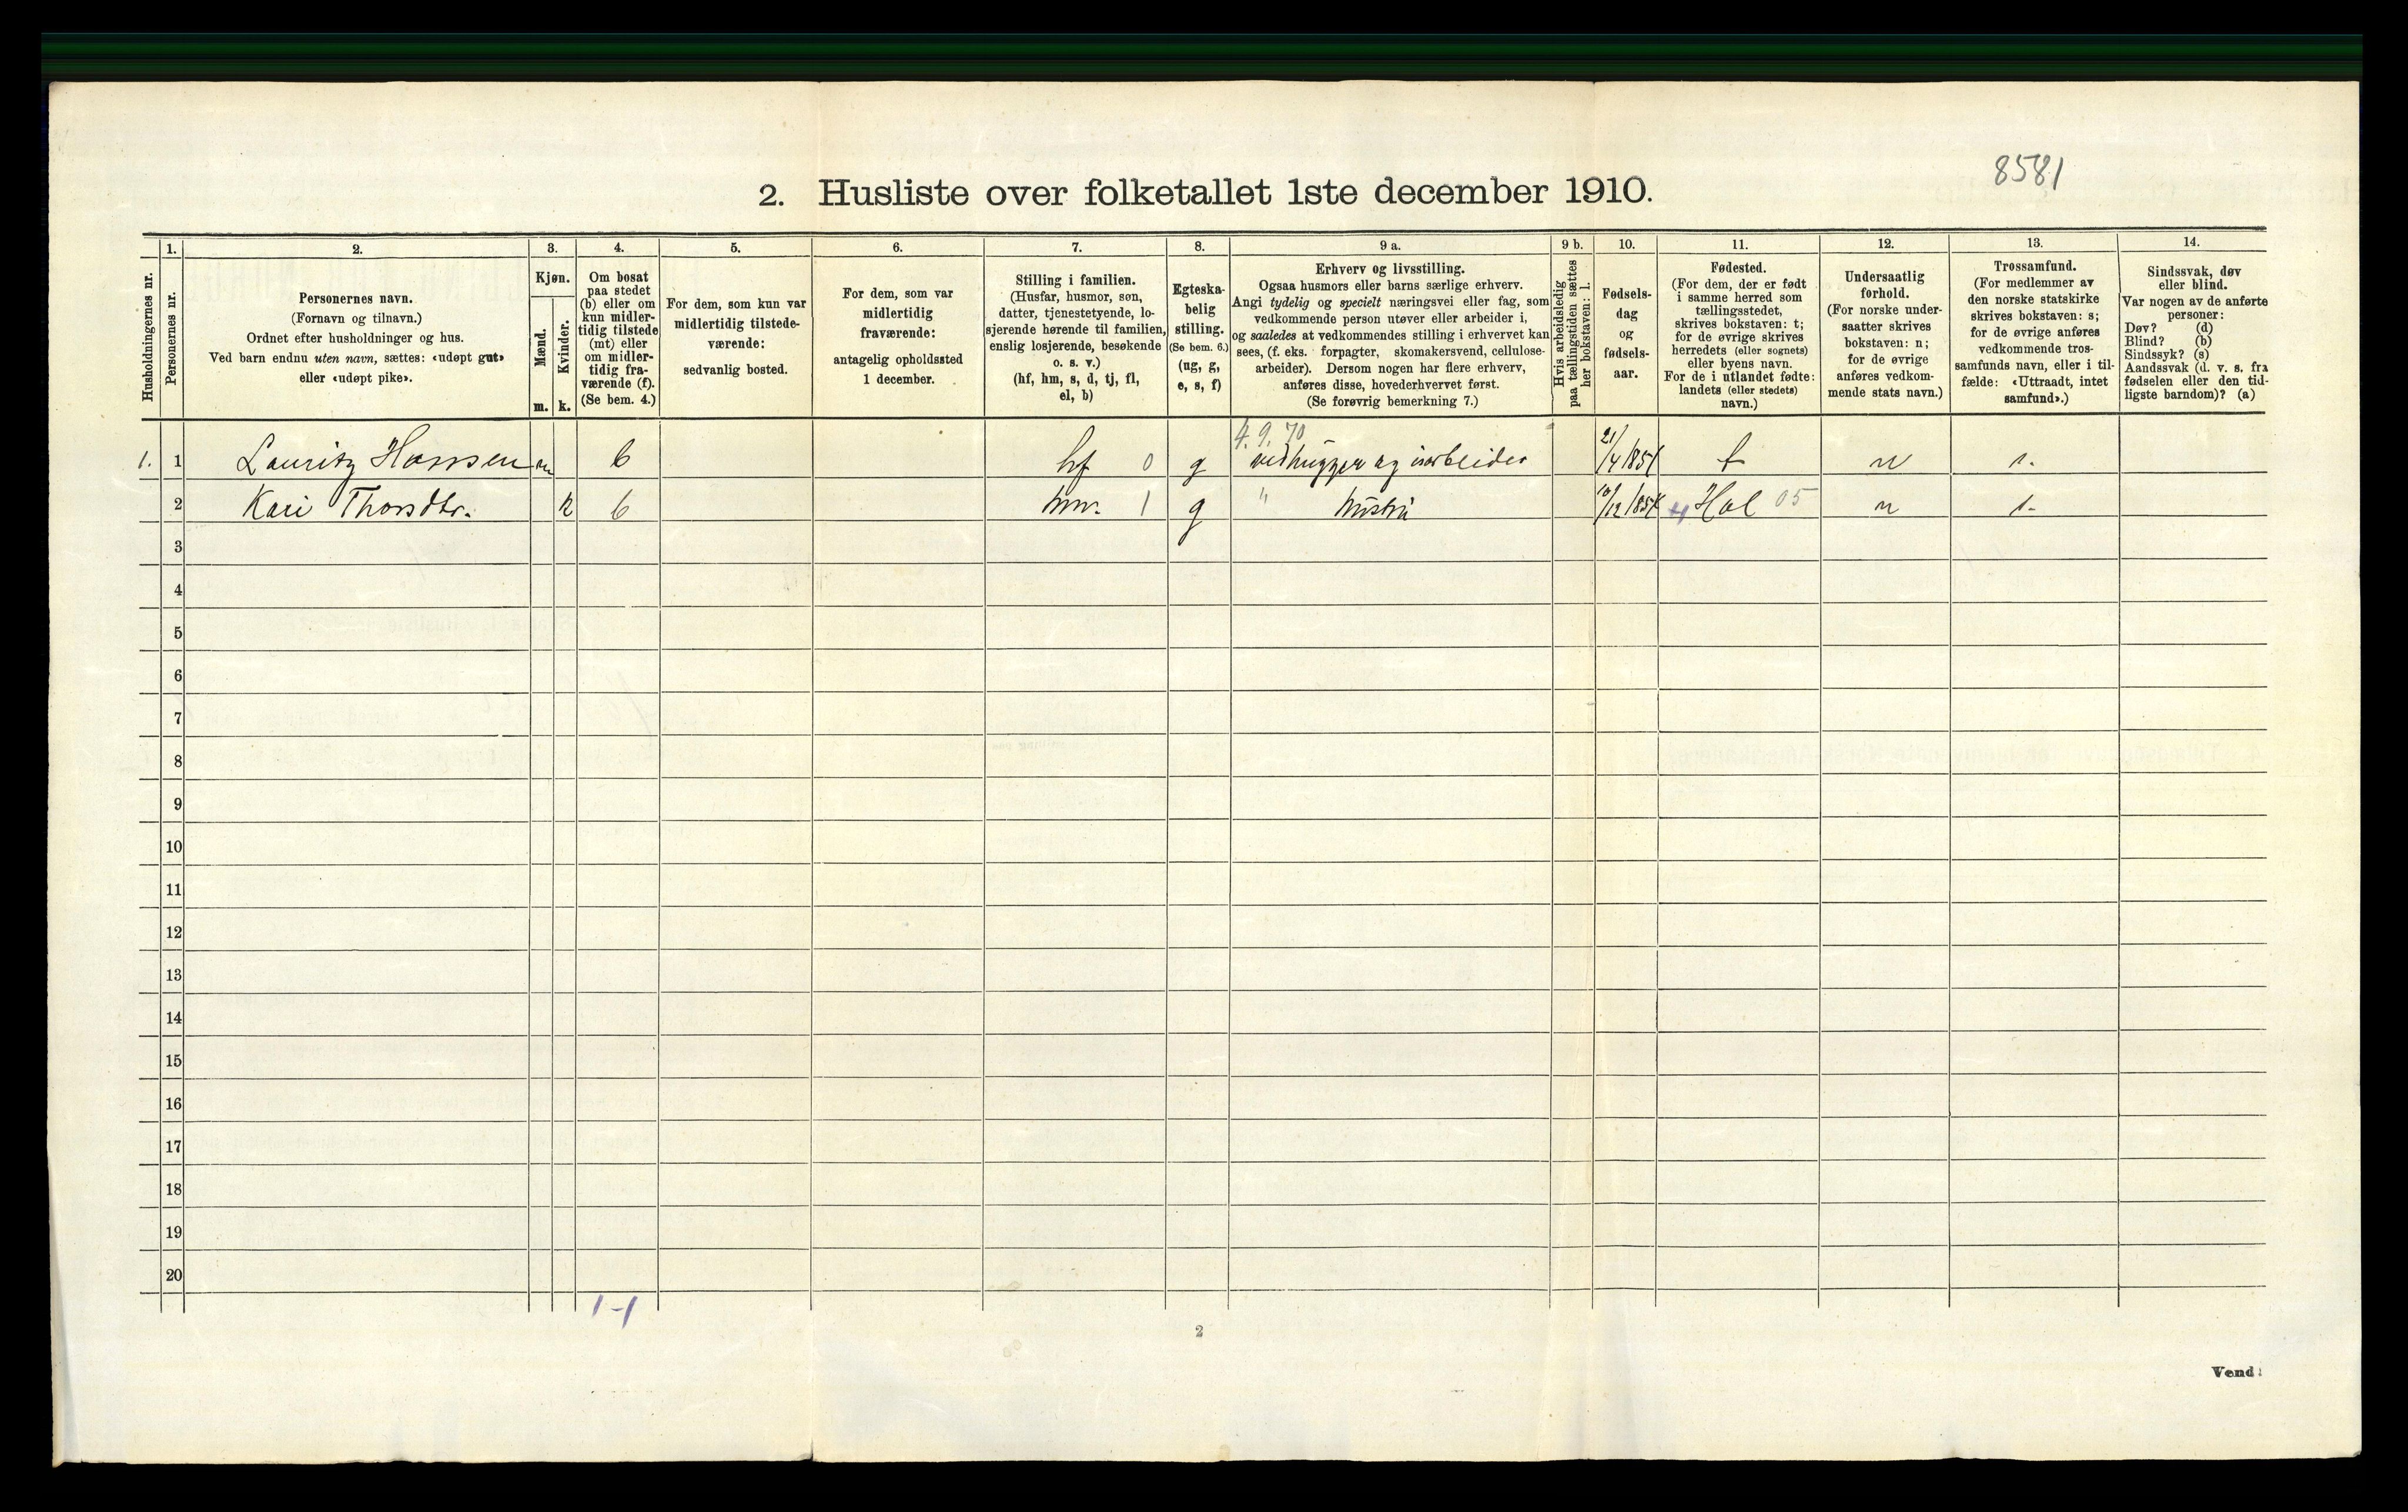 8581
2. Husliste over folketallet 1ste december 1910.
Husholdningernes nr.
1.
Personernes nr.
2.
Personernes navn.
(Fornavn og tilnavn.)
Ordnet efter husholdninger og hus.
Ved barn endnu uten navn, sættes: «udøpt gut»
eller «udøpt pike».
3.
Kjøn.
Mænd.
m.
Kvinder.
k.
4.
Om bosat
paa stedet
(b) eller om
kun midler-
tidig tilstede
(mt) eller
om midler-
tidig fra-
værende (f).
(Se bem. 4.)
5.
For dem, som kun var
midlertidig tilstede-
værende:
sedvanlig bosted.
6.
For dem, som var
midlertidig
fraværende:
antagelig opholdssted
1 december.
7.
Stilling i familien.
(Husfar, husmor, søn,
datter, tjenestetyende, lo-
sjerende hørende til familien,
enslig losjerende, besøkende
o. s. v.)
(hf, hm, s, d, tj, fl,
el, b)
8.
Egteska-
belig
stilling.
(Se bem. 6.)
(ug, g,
e, s, f)
9 a.
Erhverv og livsstilling.
Ogsaa husmors eller barns særlige erhverv.
Angi tydelig og specielt næringsvei eller fag, som
vedkommende person utøver eller arbeider i,
og saaledes at vedkommendes stilling i erhvervet kan
sees, (f. eks. forpagter, skomakersvend, cellulose-
arbeider). Dersom nogen har flere erhverv,
anføres disse, hovederhvervet først.
(Se forøvrig bemerkning 7.)
9 b.
Hvis arbeidsledig
paa tællingstiden sættes
her bokstaven: l.
10.
Fødsels-
dag
og
fødsels-
aar.
11.
Fødested.
(For dem, der er født
i samme herred som
tællingsstedet,
skrives bokstaven: t;
for de øvrige skrives
herredets (eller sognets)
eller byens navn.
For de i utlandet fødte:
landets (eller stedets)
navn.)
12.
Undersaatlig
forhold.
(For norske under-
saatter skrives
bokstaven: n;
for de øvrige
anføres vedkom-
mende stats navn.)
13.
Trossamfund.
(For medlemmer av
den norske statskirke
skrives bokstaven: s;
for de øvrige anføres
vedkommende tros-
samfunds navn, eller i til-
fælde: «Uttraadt, intet
samfund».)
14.
Sindssvak, døv
eller blind.
Var nogen av de anførte
personer:
Døv? (d)
Blind? (b)
Sindssyk? (s)
Aandssvak (d. v. s. fra
fødselen eller den tid-
ligste barndom)? (a)
4.9.70
1. 1 Lauritz Hansen m b hf 0 g vedhugger og isarbeider 21/4 1851 t n s.
2 Kari Thorsdtr. k b hm. 1 g " hustru 10/12 Hol 05 n s.
3
4
5
6
7
8
9
10
11
12
13
14
15
16
17
18
19
20
1-1
2
Vend!